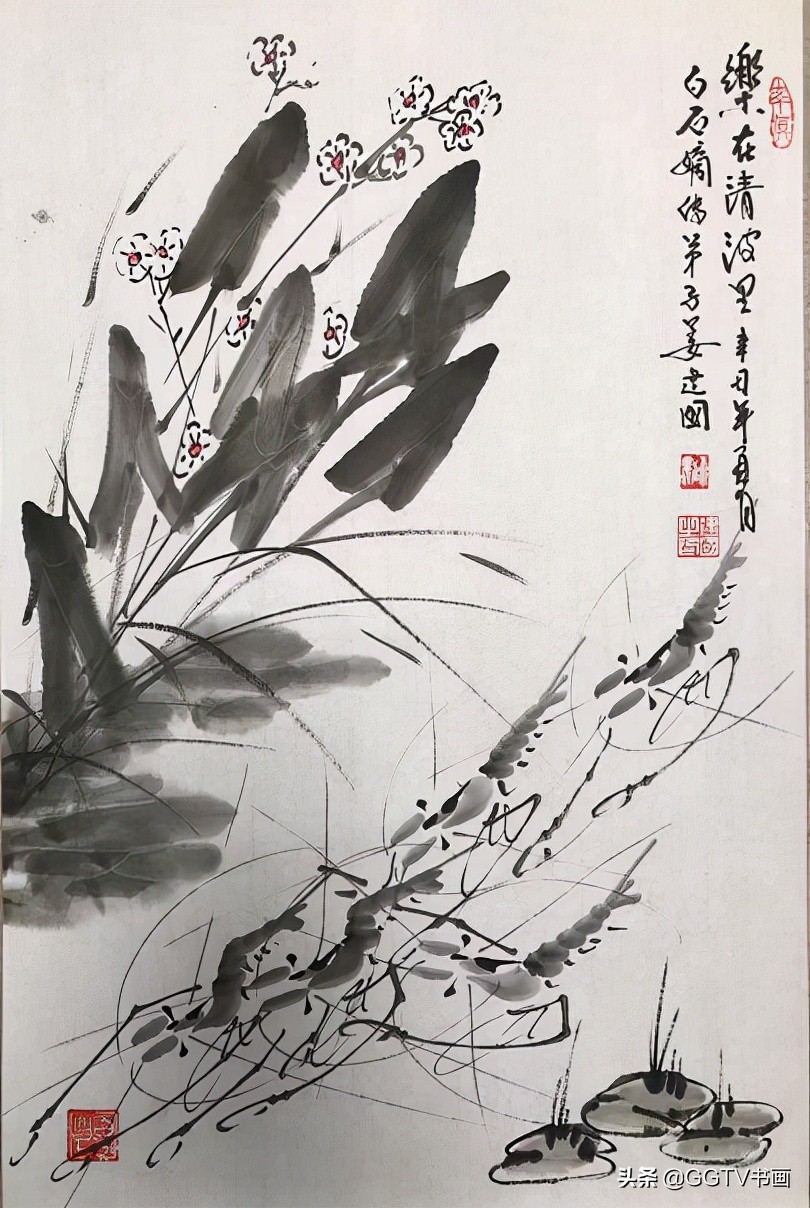 樂在清波里 辛丑年夏月
白石嫡傳弟子姜建國
率真
头条 @GGTV书画